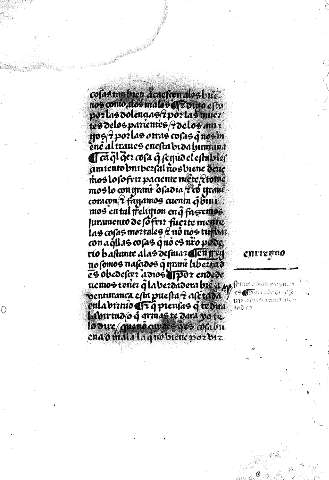 cosas tan bien acaescen alos bue
nos como alos malos ¶ E digo esto
por las dolençias & por las muer
tes delos parientes & delos ami
gos & por las otras cosas q̃ nos vi
enẽ al traues en esta vida humana
¶ Ca q̃l q̃er cosa q̃ segũd el estables
çimiento vniuersal nos viene deue
mos lo sofrir paciente mẽte & tome
mos lo con grant osadia & cõ grant
coraçon & fagamos cuenta q̃ beui
mos en tal religion en q̃ fazemos
juramento de sofrir fuerte mente
las cosas mortales & nõ nos turbar
con aq̃llas cosas q̃ no es nr̃o pode
rio bastante alas desuiar ¶ en reg
no somos nasçidos q̃ grant libertad
es obedesçer a dios ¶ Por ende de
uemos tener q̃ la verdadera biẽ a
uenturança esta puesta & asentada
en la virtud ¶ E q̃ piensas q̃ te dira
la virtud o q̃ armas te dara yo te
lo dire / que nõ cuydes q̃ es cosa bu
ena o mala la q̃ nõ viene por vir
en regno